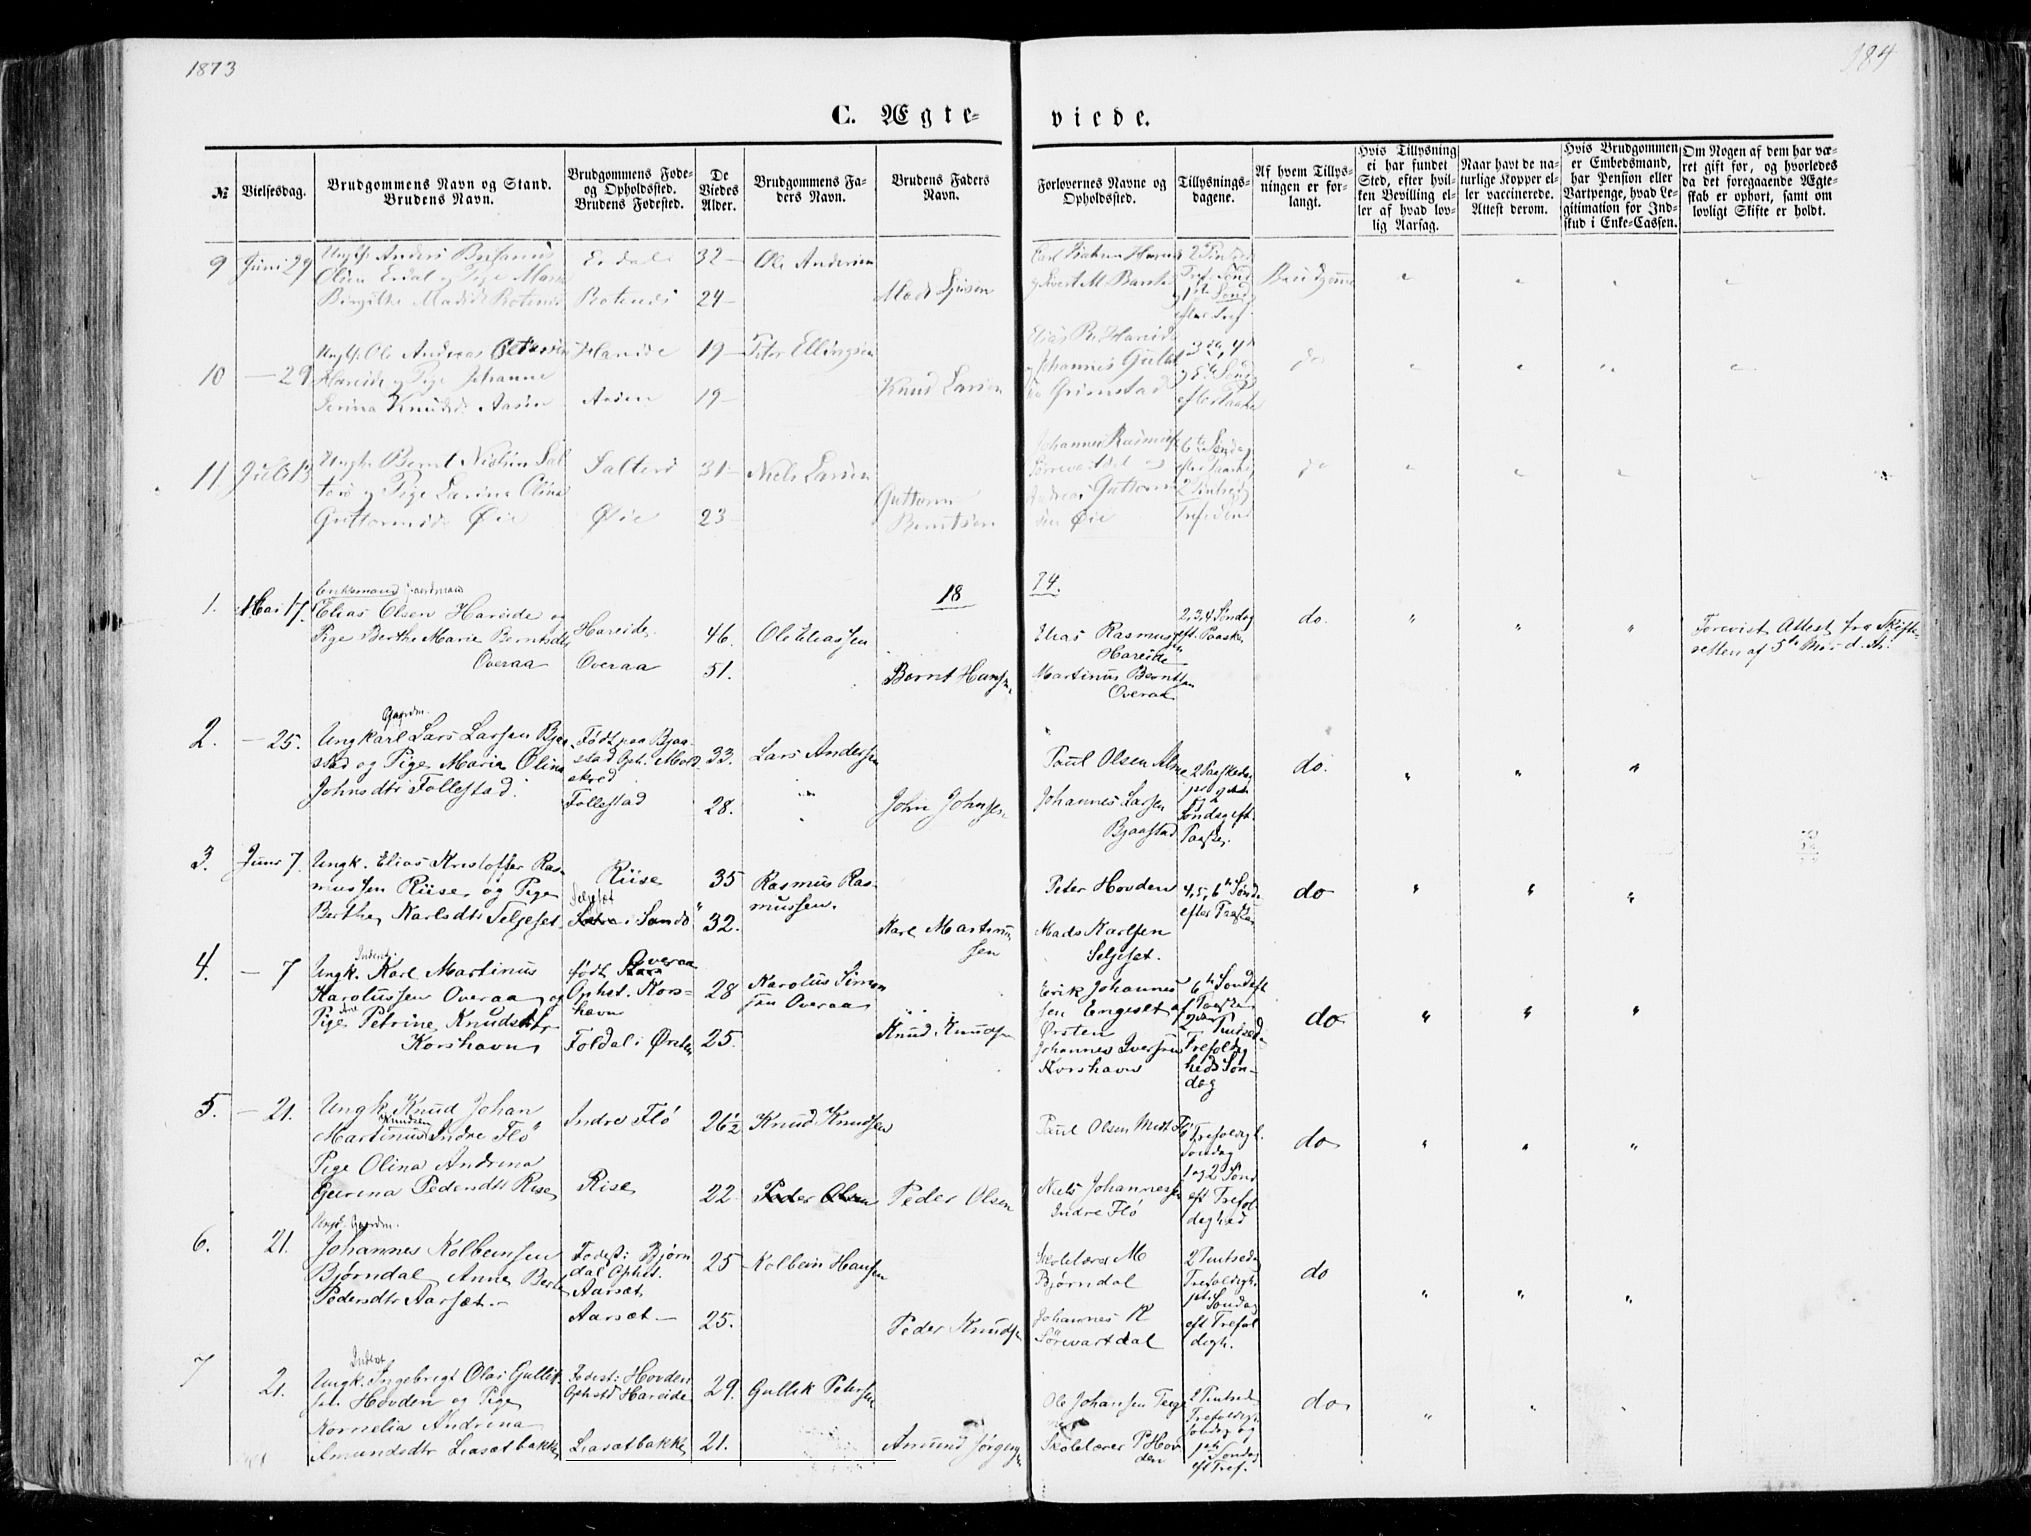 1873
184
C. Ægte-
viede.
№
Vielsesdag.
Brudgommens Navn og Stand.
Brudens Navn.
Brudgommens Føde-
og Opholdssted.
Brudens Fødested.
De
Viedes
Alder.
Brudgommens Fa-
ders Navn.
Brudens Faders
Navn.
Forlovernes Navne og
Opholdssted.
Tillysnings-
dagene.
Af hvem Tillys-
ningen er for-
langt.
Hvis Tillysning
ei har fundet
Sted, efter hvil-
ken Bevilling el-
ler af hvad lov-
lig Aarsag.
Naar havt de na-
turlige Kopper el-
ler vaccinerede.
Attest derom.
Hvis Brudgommen
er Embedsmand,
har Pension eller
Vartpenge, hvad Le-
gitimation for Ind-
skud i Enke-Cassen.
Om Nogen af dem har væ-
ret gift før, og hvorledes
da det foregaaende Ægte-
skab er ophørt, samt om
lovligt Skifte er holdt.
9 Juni 29
Olsen Erdal og Pige
Erdal 32
24
Ole Andersen
10 29
Hareide og Pige Johanne
Serina Knudsd Aasen
Hareide 19
Aasen 19
Peter Ellingsen
Knud Larsen
Grimstad
do
11 Juli 13
Ungk. Bernt Nielsen Sal
terø og Pige Larina Olina
Guttormsd Øie
Salterø 31
Øie 23
Niels Larsen
Guttorm
Berntsen
Andreas Guttorm
sen Øie
do
18
74.
1. Mai 17.
Enkemand Gaardmand
Elias Olsen Hareide og
Pige Berthe Marie Berntsdtr
Overaa
Hareide
Overaa
46.
51.
Ole Eliassen
Bernt Hansen
Elias Rasmussen
Hareide
Martinus Berntsen
Overaa
2, 3, 4 Søndag
eft. Paaske
do.
Forevist Attest fra Skifte-
retten af 5te Mai d. A.
2. - 25.
Gaardm.
Ungkarl Lars Larsen Bjaa
stad og Pige Maria Olina
Johnsdtr Follestad.
Født paa Bjaa-
stad Oph. Mold
skred
Follestad
33.
28.
Lars Andersen
John Johnsen
Paul Olsen Alme
Johannes Larsen
Bjaastad
2 Paaskedag
Søndag eft.
Paaske.
do.
3. Juni 7.
Ungk. Elias Kristoffer Ras-
mussen Riise og Pige
Berthe Karlsdtr Seljeset
Riise
Seljeset
35
32.
Rasmus Ras-
mussen.
Karl Martinus
sen
Peter Hovden
Mads Karlsen
Seljeset.
4, 5, 6te Sønd
efter Paaske
do
4. - 7
Inderst
Ungk. Karl Martinus
Karolussen Overaa og
Pige Ane Petrine Knudsdtr
Korshavn
født Overaa
Ophst. Kors-
havn
Foldal i Ørsten
28
25.
Karolus Simon
sen Overaa
Knud Knudsen
Erik Johannes
sen Engeset af
Ørsten
Johannes Iversen
Korshavn
6te Sønd eft
Paaske
2 Pintsed
Trefoldig
heds Søn-
dag
do
5. - 21.
Ungk Knud Johan
Martinus Knudsen Indre Flö
Pige Olina Andrina
Geerina Pedersdtr Rise
Indre Flö
Rise
26½
22
Knud Knudsen
Peder Olsen
Peder Olsen
Paul Olsen
Niels Johannessen
Indre Flö
Trefoldigh.
Søndag
1 og 2 Sønd
eft Trefol-
dighed
do
6. 21.
Ungk. Gaardm.
Johannes Kolbeinsen
Bjørndal Anne Berte
Pedersdtr Aarset.
Fødest: Bjørn
dal Ophst.
Aarsæt.
Aarsæt
25
25.
Kolbein Hansen
Peder Knudsen
Skolelærer M
Bjørndal
Johannes K
Sörevartdal
2 Pintsedag
Trefoldigh.
Søndag
eft Trefol
digh.
do
7 21.
Inderst
Ungk. Ingebrigt Olai Gullik-
sen Hovden og Pige
Kornelia Andrina
Amundsdtr Liasætbakke
Fødest: Hovden
Ophstd Hareide
Liasætbakke
29.
21.
Gullik Petersen
Amund Jørgensen
Ole Johansen
Skolelærer P Hov
den
2 Pintsed
Trefoldigh
Søndag og
Søndag
eft Tref.
do